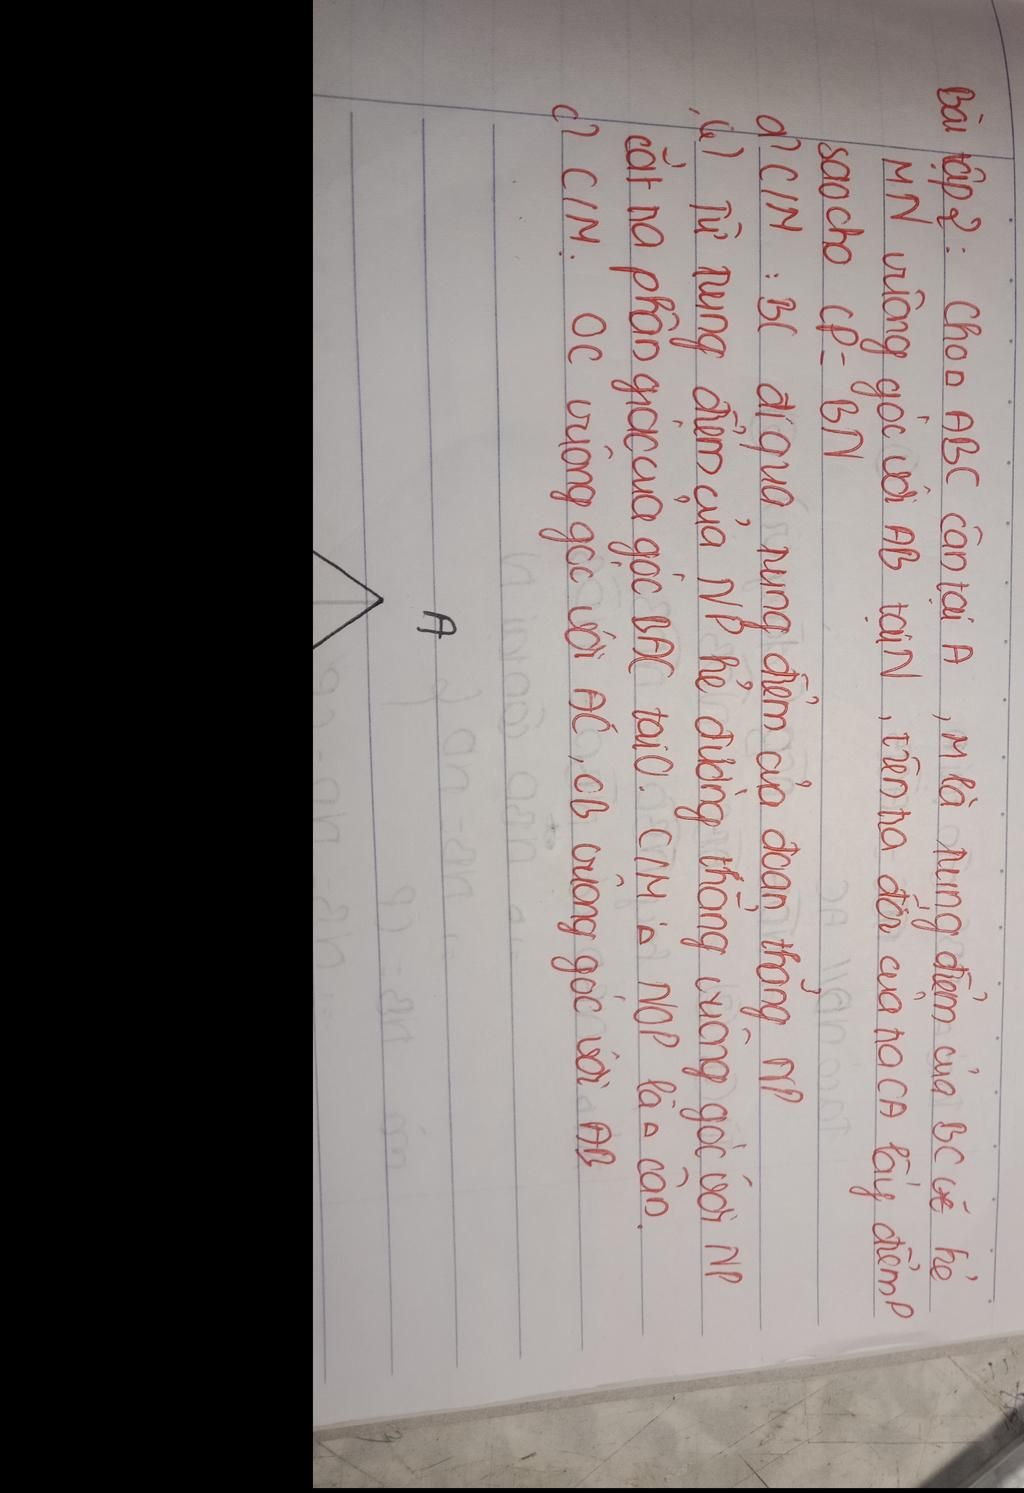 Bài tập 2: Cho △ ABC cân tại A, M là trung điểm của BC kẻ
MN vuông góc với AB tại N, trên tia đối của tia CA lấy điểm P
sao cho CP = BN
a) C/M : BC đi qua trung điểm của đoạn thẳng NP
b) Từ trung điểm của NP kẻ đường thẳng vuông góc với NP
cắt tia phân giác của góc BAC tại O. C/M △ NOP là △ cân.
c) C/M. OC vuông góc với AC, OB vuông góc với AB
A